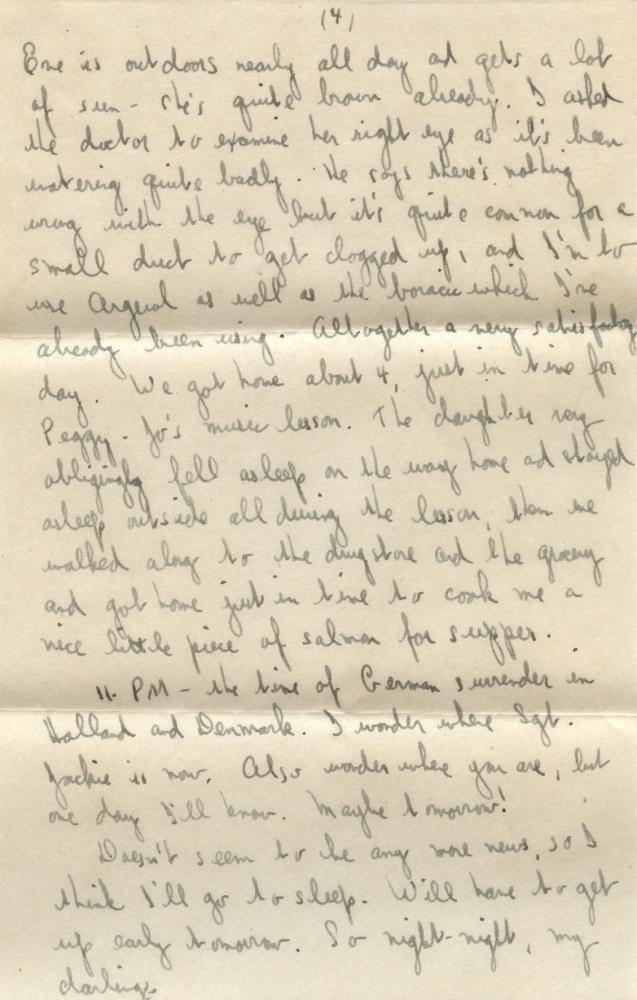 (4)
Eve is outdoors nearly all day and gets a lot
of sun - she's quite brown already. I asked
the doctor to examine her right eye as it's been
watering quite badly. He says there's nothing
wrong with the eye but it's quite common for a
small duct to get clogged up, and I'm to
use Argerol as well as the boracic which I've
already been using. Altogether a very satisfactory
day. We got home about 4, just in time for
Peggy-Jo's music lesson. The daughter very
obligingly fell asleep on the way home and stayed
asleep outside all during the lesson, then we
walked along to the drugstore and the grocery
and got home just in time to cook me a
nice little piece of salmon for supper.
11. PM - the time of German surrender in
Holland and Denmark. I wonder where Sgt.
Jackie is now. Also wonder where you are, but
one day I'll know. Maybe tomorrow!
Doesn't seem to be any more news, so I
think I'll go to sleep. Will have to get
up early tomorrow. So night-night, my
darling.